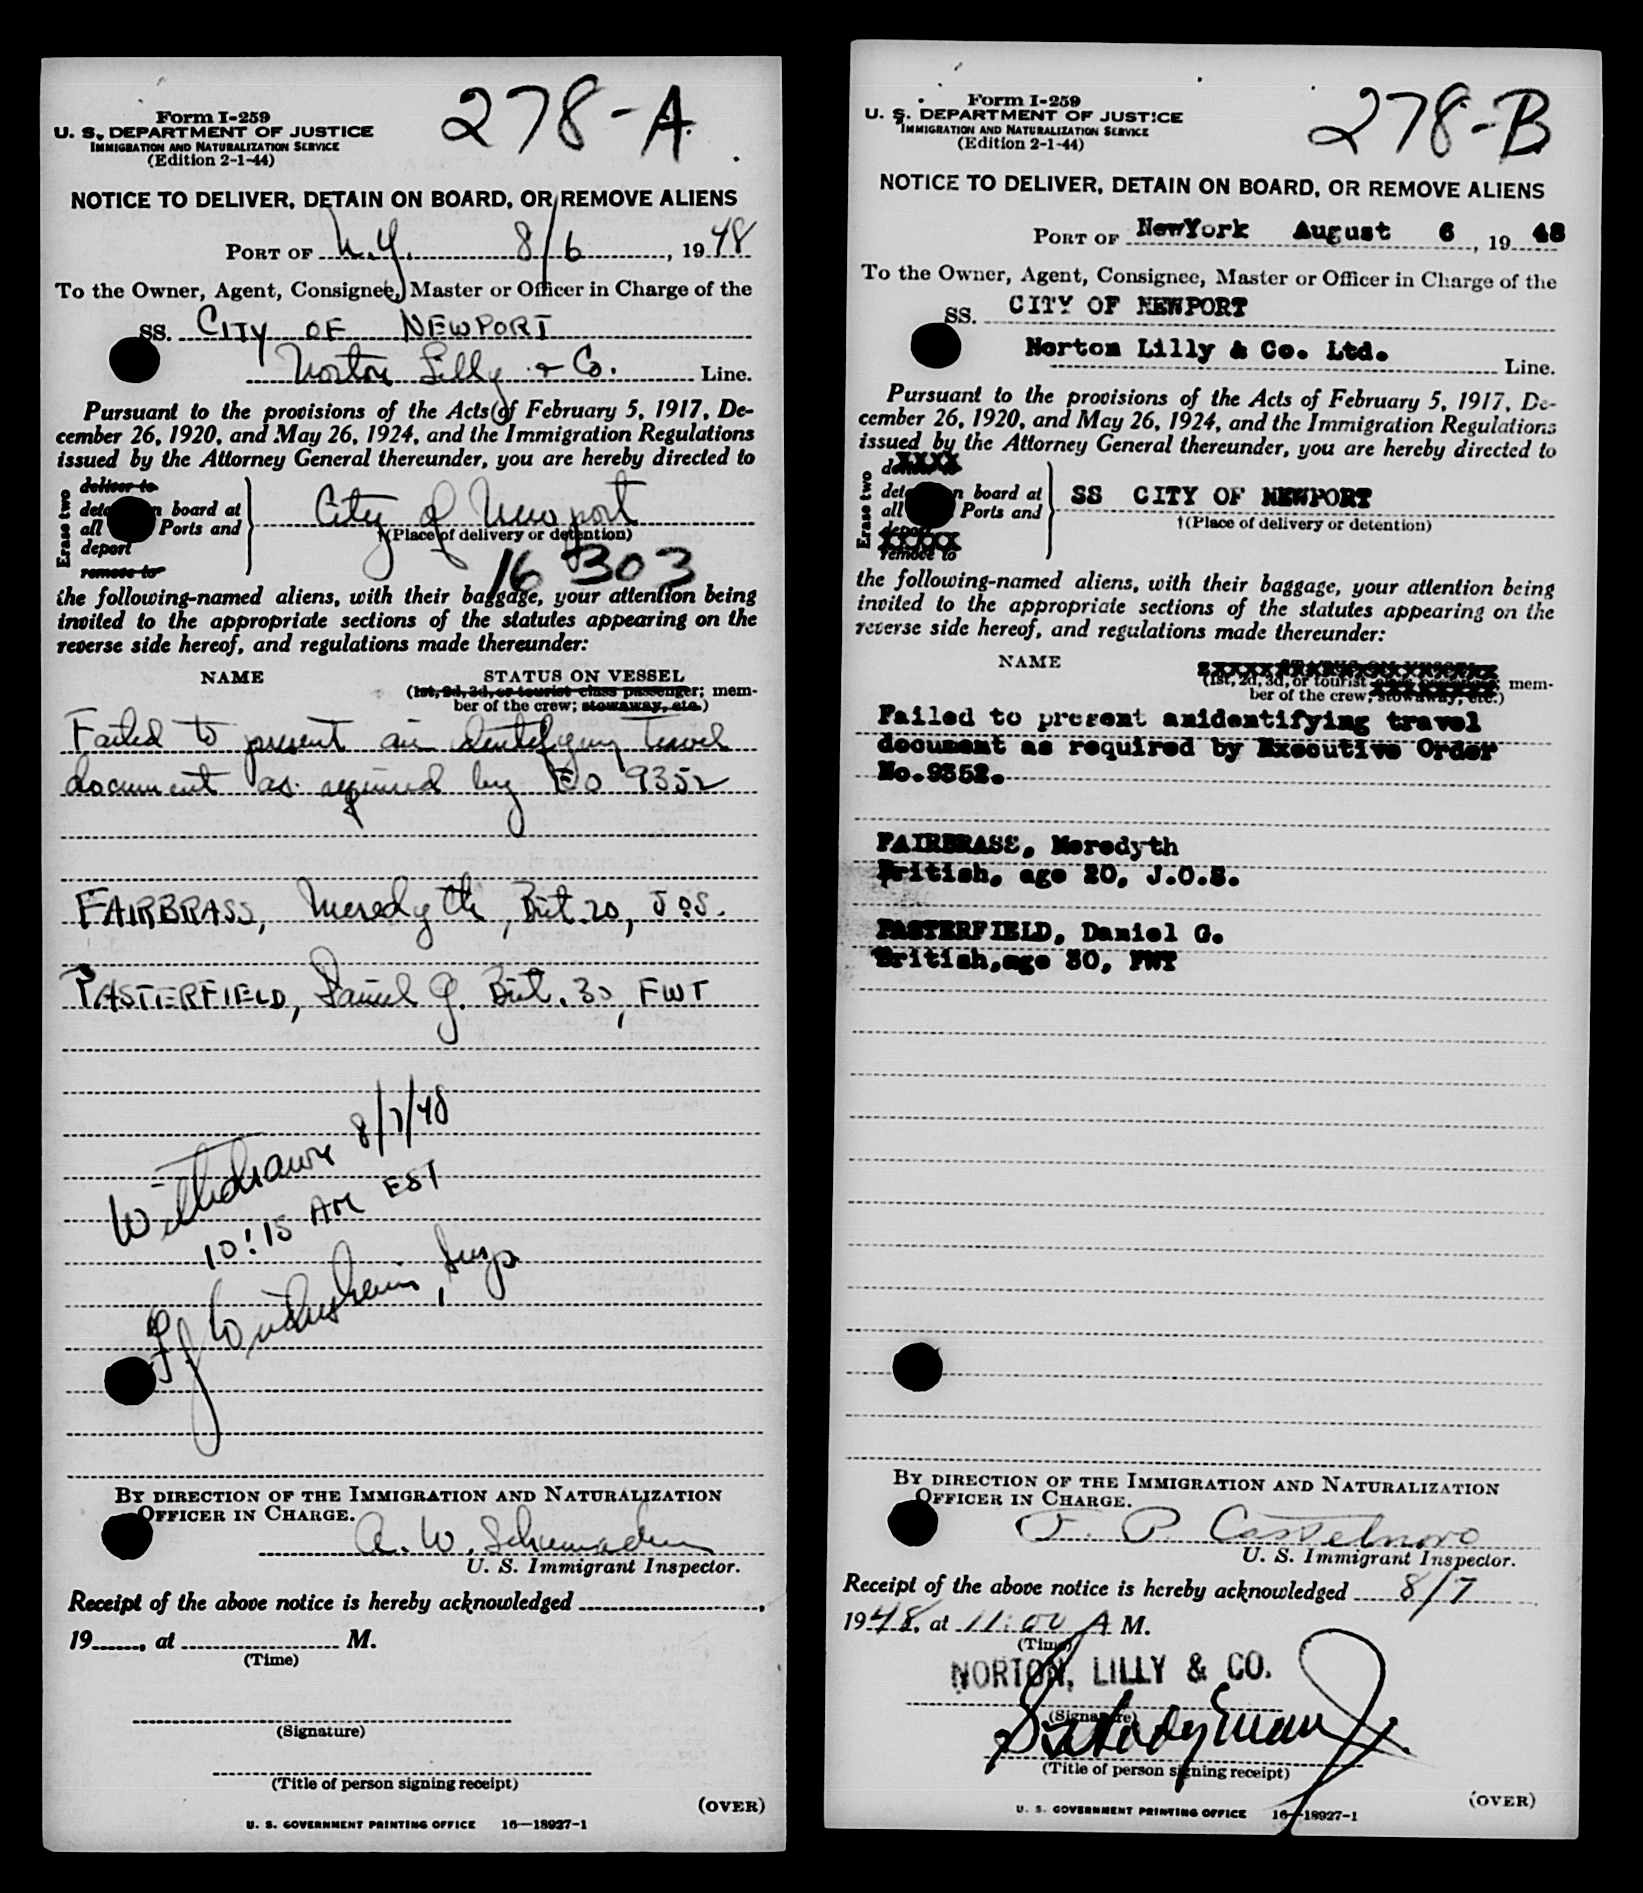 278-A
Form I-259
U. S. DEPARTMENT OF JUSTICE
IMMIGRATION AND NATURALIZATION SERVICE
(Edition 2-1-44)
NOTICE TO DELIVER, DETAIN ON BOARD, OR REMOVE ALIENS
PORT OF N.Y. 8/6, 1948
To the Owner, Agent, Consignee, Master or Officer in Charge of the
SS. CITY OF NEWPORT
Norton Lilly & Co. Line.
Pursuant to the provisions of the Acts of February 5, 1917, De-
cember 26, 1920, and May 26, 1924, and the Immigration Regulations
issued by the Attorney General thereunder, you are hereby directed to
Erase two
deliver to
board at
all Ports and
deport
remove to
City of Newport
†(Place of delivery or detention)
16 303
the following-named aliens, with their baggage, your attention being
invited to the appropriate sections of the statutes appearing on the
reverse side hereof, and regulations made thereunder:
NAME STATUS ON VESSEL
(1st, 2d, 3d, or tourist class passenger; mem-
ber of the crew; stowaway, etc.)
Failed to present an identifying travel
document as required by EO 9352
FAIRBRASS, Meredyth, Brit. 20, JOS.
PASTERFIELD, Daniel G. Brit. 30, FWT
Withdrawn 8/7/48
10:15 AM EST
Insp
BY DIRECTION OF THE IMMIGRATION AND NATURALIZATION
OFFICER IN CHARGE.
A. W.
U. S. Immigrant Inspector.
Receipt of the above notice is hereby acknowledged
19, at M.
(Time)
(Signature)
(Title of person signing receipt)
(OVER)
U. S. GOVERNMENT PRINTING OFFICE 16—18927-1
278-B
Form I-259
U. S. DEPARTMENT OF JUSTICE
IMMIGRATION AND NATURALIZATION SERVICE
(Edition 2-1-44)
NOTICE TO DELIVER, DETAIN ON BOARD, OR REMOVE ALIENS
PORT OF NewYork August 6, 1948
To the Owner, Agent, Consignee, Master or Officer in Charge of the
SS. CITY OF NEWPORT
Norton Lilly & Co. Ltd. Line.
Pursuant to the provisions of the Acts of February 5, 1917, De-
cember 26, 1920, and May 26, 1924, and the Immigration Regulations
issued by the Attorney General thereunder, you are hereby directed to
Erase two
xxxx
board at
all Ports and
xxxxx
remove to
SS CITY OF NEWPORT
†(Place of delivery or detention)
the following-named aliens, with their baggage, your attention being
invited to the appropriate sections of the statutes appearing on the
reverse side hereof, and regulations made thereunder:
NAME STATUS ON VESSEL
(1st, 2d, 3d, or tourist mem-
ber of the crew; stowaway, etc.)
Failed to present anidentifying travel
document as required by Executive Order
No.9352.
FAIRBRASS, Meredyth
British, age 20, J.O.S.
PASTERFIELD, Daniel G.
British,age 30, FWT
BY DIRECTION OF THE IMMIGRATION AND NATURALIZATION
OFFICER IN CHARGE.
F. P. Castelnovo
U. S. Immigrant Inspector.
Receipt of the above notice is hereby acknowledged 8/7
1948, at 11:00 A M.
(Time)
NORTON, LILLY & CO.
(Signature)
(Title of person signing receipt)
(OVER)
U. S. GOVERNMENT PRINTING OFFICE 16—18927-1